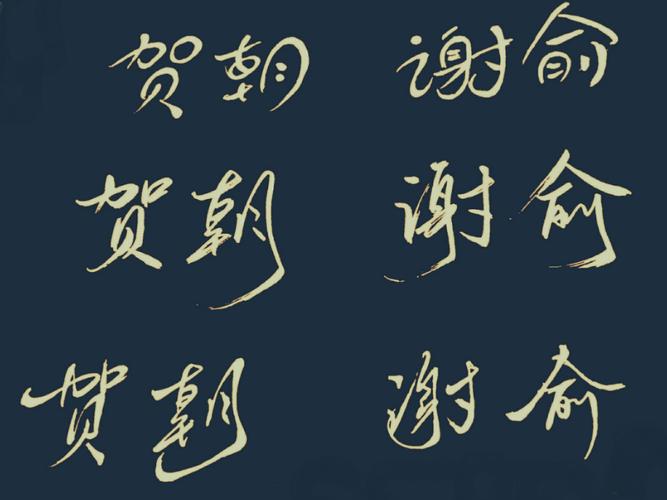 贺朝 谢俞
贺朝 谢俞
贺朝 谢俞